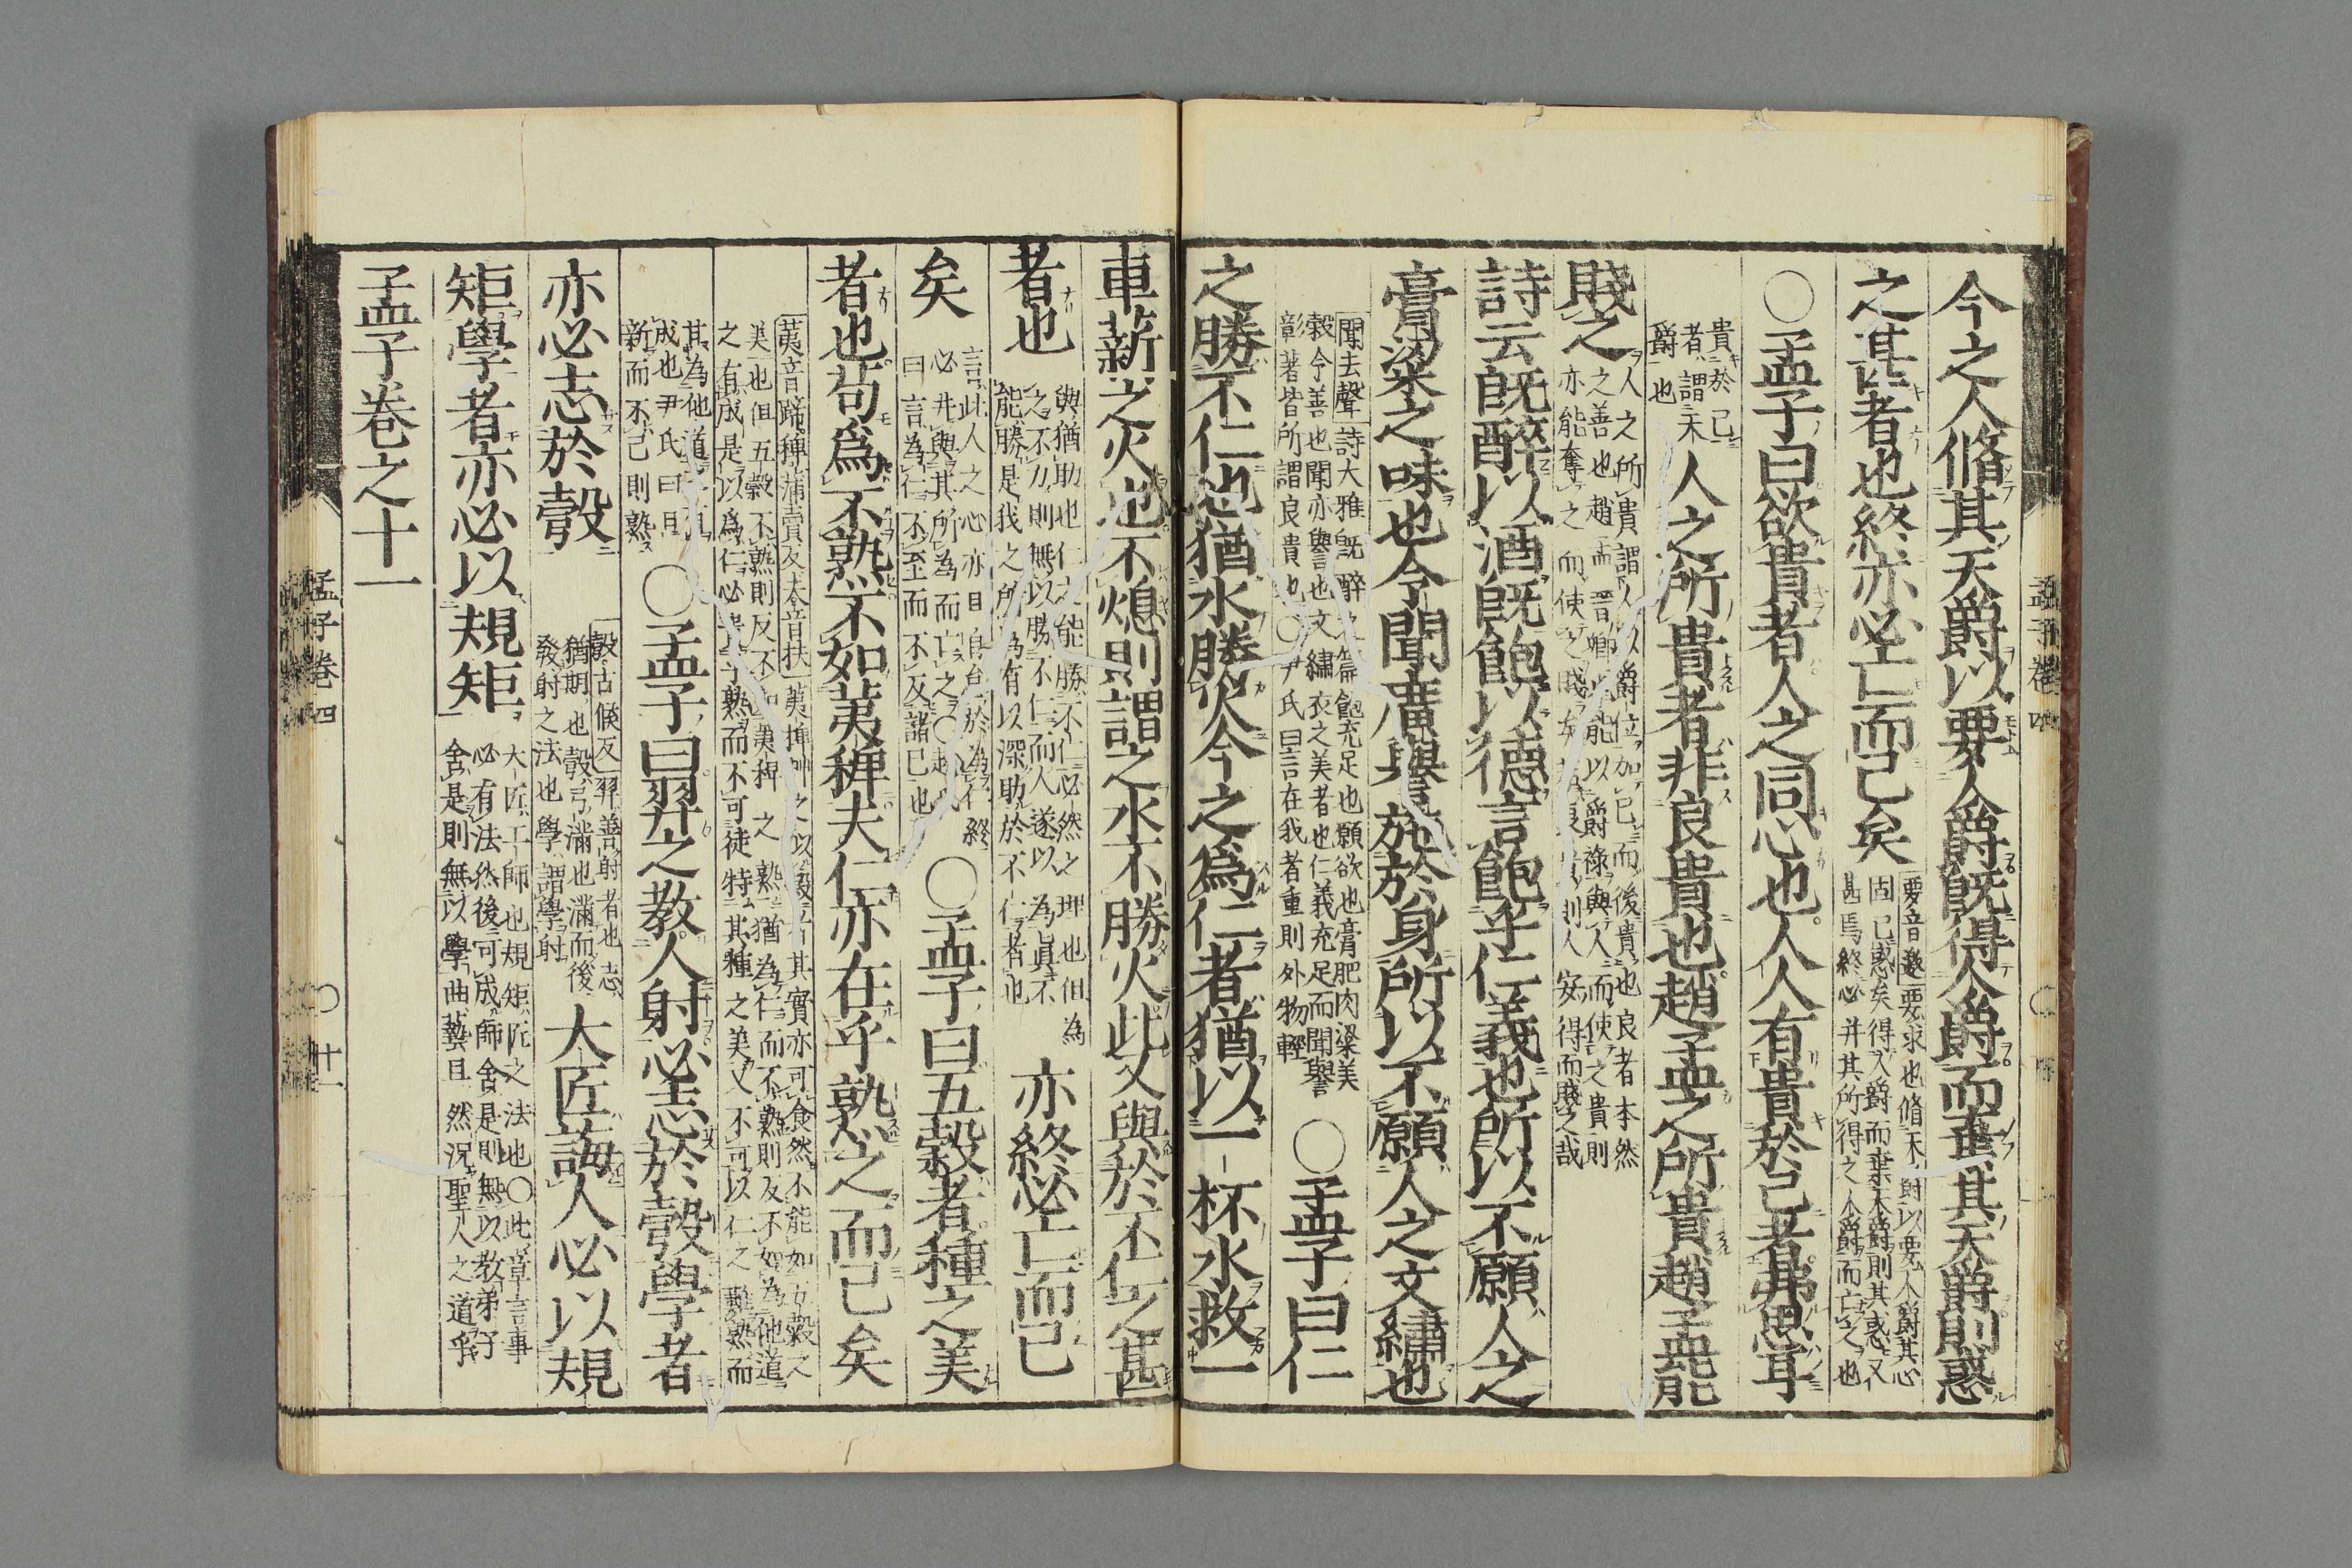 今之人脩其天爵以要人爵既得人爵而棄其天爵則惑
之甚者也終亦必亡而已矣
要音邀要求也脩天爵以要人爵其心
固已惑矣得人爵而棄天爵則其惑又
甚焉終必并其所得之人爵而亡之也
○孟子曰欲貴者人之同心也人人有貴於己者弗思耳
貴於己
者謂天
爵也
人之所貴者非良貴也趙孟之所貴趙孟能
賤之
人之所貴謂人以爵位加己而後貴也良者本然
之善也趙孟晋卿也能以爵祿與人而使之貴則
亦能奪之而使之賤矣若良貴則人安得而賤之哉
詩云既醉以酒既飽以德言飽乎仁義也所以不願人之
膏粱之味也令聞廣譽施於身所以不願人之文繡也
聞去聲詩大雅既醉之篇飽充足也願欲也膏肥肉粱美
穀令善也聞亦譽也文繡衣之美者也仁義充足而聞譽
彰著皆所謂良貴也○尹氏曰言在我者重則外物輕
○孟子曰仁
之勝不仁也猶水勝火今之爲仁者猶以一杯水救一
車薪之火也不熄則謂之水不勝火此又與於不仁之甚
者也
與猶助也仁之能勝不仁必然之理也但為
之不力則無以勝不仁而人遂以為真不
能勝是我之所為有以深助於不仁者也
亦終必亡而已
矣
言此人之心亦且自怠於為仁終
必并與其所為而亡之○趙氏
曰言為仁不至而不反諸己也
○孟子曰五穀者種之美
者也苟爲不熟不如荑稗夫仁亦在乎熟之而已矣
荑音蹄稗蒲賣反夫音扶荑稗草之似穀者其實亦可食然不能如五穀之
美也但五穀不熟則反不如荑稗之熟猶為仁而不熟則反不如為他道
之有成是以爲仁必貴乎熟而不可徒特其種之美又不可以仁之難熟而
其為他道之有
成也尹氏曰日
新而不已則熟
○孟子曰羿之教人射必志於彀學者
亦必志於彀
彀古候反羿善射者也志
猶期也彀弓滿也滿而後
發射之法也學謂學射
大匠誨人必以規
矩學者亦必以規矩
大匠工師也規矩匠之法也○此章言事
必有法然後可成師舍是則無以教弟子
舍是則無以學曲藝且然況聖人之道乎
孟子卷之十一
孟子卷四
○
十一
孟子卷四
○